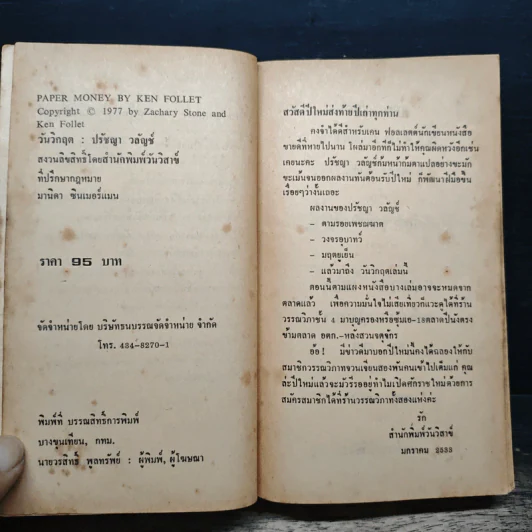 PAPER MONEY BY KEN FOLLET
Copyright © 1977 by Zachary Stone and
Ken Follet
วันวิกฤต : ปรัชญา วลัญช์
สงวนลิขสิทธิ์โดยสำนักพิมพ์วันวิสาข์
ที่ปรึกษากฎหมาย
มานิดา ซินเมอร์แมน
ราคา 95 บาท
จัดจำหน่ายโดย บริษัทธนบรรณจัดจำหน่าย จำกัด
โทร. 434-8270-1
พิมพ์ที่ บรรณสิทธิ์การพิมพ์
บางขุนเทียน, กทม.
นายวรสิทธิ์ พูลทรัพย์ : ผู้พิมพ์, ผู้โฆษณา
สวัสดีปีใหม่ส่งท้ายปีเก่าทุกท่าน
คงจำได้ดีสำหรับเคน ฟอลเลตต์นักเขียนหนังสือ
ขายดีที่หายไปนาน โผล่มาอีกทีก็ไม่ทำให้คุณผิดหวังอีกเช่น
เคยนะคะ ปรัชญา วลัญช์ก้มหน้าก้มตาแปลอย่างขะมัก
ขะเม้นจนออกผลงานทันต้อนรับปีใหม่ ก็พัฒนาฝีมือขึ้น
เรื่อยๆว่างั้นเถอะ
ผลงานของปรัชญา วลัญช์
– ตามรอยเพชฌฆาต
– วงจรอุบาทว์
– มฤตยูเย็น
– แล้วมาถึง วันวิกฤตเล่มนี้
ตอนนี้ตามแผงหนังสือบางเล่มอาจจะหมดจาก
ตลาดแล้ว เพื่อความมั่นใจไม่เสียเที่ยวก็แวะดูได้ที่ร้าน
วรรณวิภาชั้น 4 มาบุญครองหรือซุ้มเอ-18ตลาดปิ่นตรง
ข้ามตลาด อตก.-หลังสวนจตุจักร
อ้อ! มีข่าวดีมาบอกปีใหม่นี้คงได้ฉลองให้กับ
สมาชิกวรรณวิภาทจวนเจียนสองพันคนเข้าไปเต็มแก่ คุณ
ล่ะปีใหม่แล้วจะมัวรีรออยู่ทำไมเปิดศักราชใหม่ด้วยการ
สมัครสมาชิกได้ที่ร้านวรรณวิภาทั้งสองแห่งค่ะ
รัก
สำนักพิมพ์วันวิสาข์
มกราคม 2532